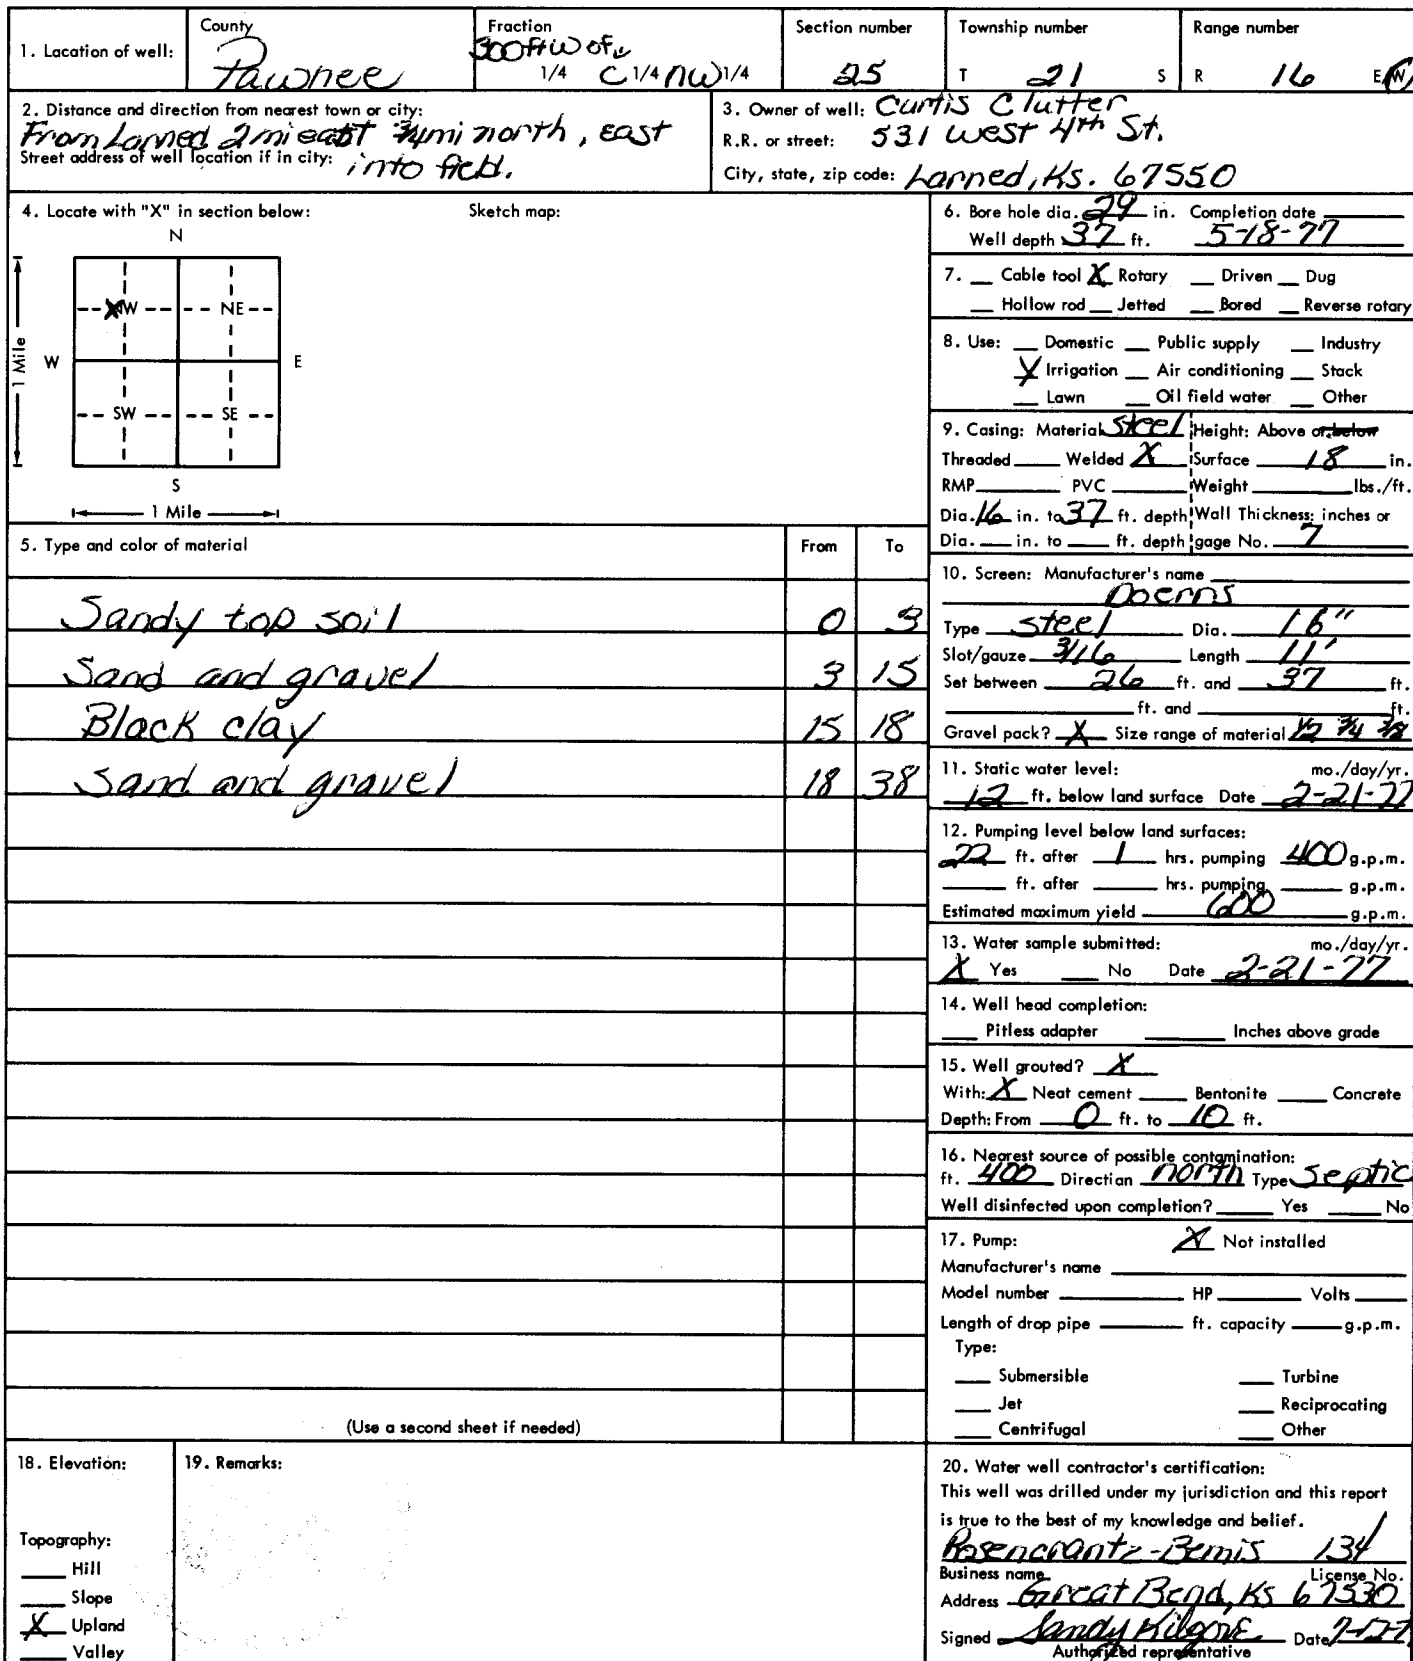 1. Location of well:
County
Pawnee
Fraction
300 ft W of
1/4 C 1/4 NW 1/4
Section number
25
Township number
T 21 S
Range number
R 16 E W
2. Distance and direction from nearest town or city:
From Larned 2 mi east 3/4 mi north, east
Street address of well location if in city: into field.
3. Owner of well: Curtis Clutter
R.R. or street: 531 West 4th St.
City, state, zip code: Larned, Ks. 67550
4. Locate with "X" in section below:
Sketch map:
N
X NW NE
W E
1 Mile
SW SE
S
1 Mile
5. Type and color of material From To
Sandy top soil 0 3
Sand and gravel 3 15
Black clay 15 18
Sand and gravel 18 38
(Use a second sheet if needed)
6. Bore hole dia. 29 in. Completion date
Well depth 37 ft. 5-18-77
7. Cable tool X Rotary Driven Dug
Hollow rod Jetted Bored Reverse rotary
8. Use: Domestic Public supply Industry
X Irrigation Air conditioning Stock
Lawn Oil field water Other
9. Casing: Material Steel Height: Above or below
Threaded Welded X Surface 18 in.
RMP PVC Weight lbs./ft.
Dia. 16 in. to 37 ft. depth Wall Thickness: inches or
Dia. in. to ft. depth gage No. 7
10. Screen: Manufacturer's name
Doerrs
Type steel Dia. 16"
Slot/gauze 3/16 Length 11'
Set between 26 ft. and 37 ft.
ft. and ft.
Gravel pack? X Size range of material 1/2 3/4 3/8
11. Static water level: mo./day/yr.
12 ft. below land surface Date 2-21-77
12. Pumping level below land surfaces:
22 ft. after 1 hrs. pumping 400 g.p.m.
ft. after hrs. pumping g.p.m.
Estimated maximum yield 600 g.p.m.
13. Water sample submitted: mo./day/yr.
X Yes No Date 2-21-77
14. Well head completion:
Pitless adapter Inches above grade
15. Well grouted? X
With: X Neat cement Bentonite Concrete
Depth: From 0 ft. to 10 ft.
16. Nearest source of possible contamination:
ft. 400 Direction north Type Septic
Well disinfected upon completion? Yes No
17. Pump: X Not installed
Manufacturer's name
Model number HP Volts
Length of drop pipe ft. capacity g.p.m.
Type:
Submersible Turbine
Jet Reciprocating
Centrifugal Other
18. Elevation:
Topography:
Hill
Slope
X Upland
Valley
19. Remarks:
20. Water well contractor's certification:
This well was drilled under my jurisdiction and this report
is true to the best of my knowledge and belief.
Rosencrantz-Bemis 134
Business name License No.
Address Great Bend, Ks 67530
Signed Sandy Kilgore Date
Authorized representative